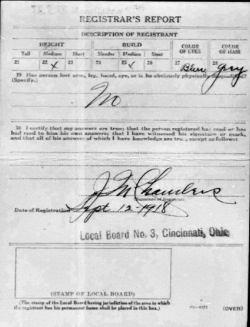 REGISTRAR'S REPORT
DESCRIPTION OF REGISTRANT
HEIGHT BUILD COLOR OF EYES COLOR OF HAIR
Tall Medium Short Slender Medium Stout
21 22 x 23 24 25 x 26 27 Blue 28 Gray
29 Has person lost arm, leg, hand, eye, or is he obviously physically disqualified?
(Specify).
No
30 I certify that my answers are true; that the person registered has read or has
had read to him his own answers; that I have witnessed his signature or mark, and
that all of his answers of which I have knowledge are true, except as follows:
J M Chambers
Date of Registration Sept 12-1918
Local Board No. 3, Cincinnati, Ohio
(STAMP OF LOCAL BOARD)
(The stamp of the Local Board having jurisdiction of the area in which
the registrant has his permanent home shall be placed in this box.)
(OVER)